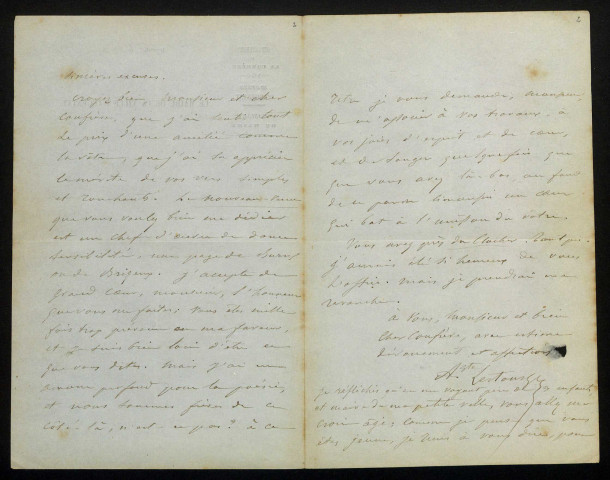 sincères excuses.
croyez bien, Monsieur et cher
Confrère, que j'ai senti tout
le prix d'une amitié comme
la vôtre, que j'ai su apprécier
le mérite de vos vers simples
et touchants. Le Nouveau-
que vous voulez bien me dédier
est un chef d'œuvre de douce
sensibilité, une page de
ou de Brizeux. J'accepte de
grand cœur, monsieur, l'honneur
que vous me faites; vous êtes mille
fois trop prévenu en ma faveur,
et je suis bien loin d'être ce
que vous dites. Mais j'ai un
amour profond pour la poésie,
et nous sommes frères de ce
côté là, n'est-ce pas? à ce
titre je vous demande, monsieur,
de m'associer à vos travaux, à
vos joies d'esprit et de cœur,
et de songer quelquefois que
que vous avez là-bas, au fond
de ce pauvre Limousin un cœur
qui bat à l'unisson du vôtre.
Vous avez près du Clocher. Tant pis.
J'aurais été si heureux de vous
. Mais je prendrai ma
revanche.
à vous, Monsieur et bien
cher Confrère, avec estime
dévouement et affection
Ate Lestourgie
Je réfléchis qu'en me voyant père de 3 enfants
et maire de ma petite ville, vous allez me
croire âgé: comme je pense que vous
êtes jeune, je tiens à vous dire, pour
2
2